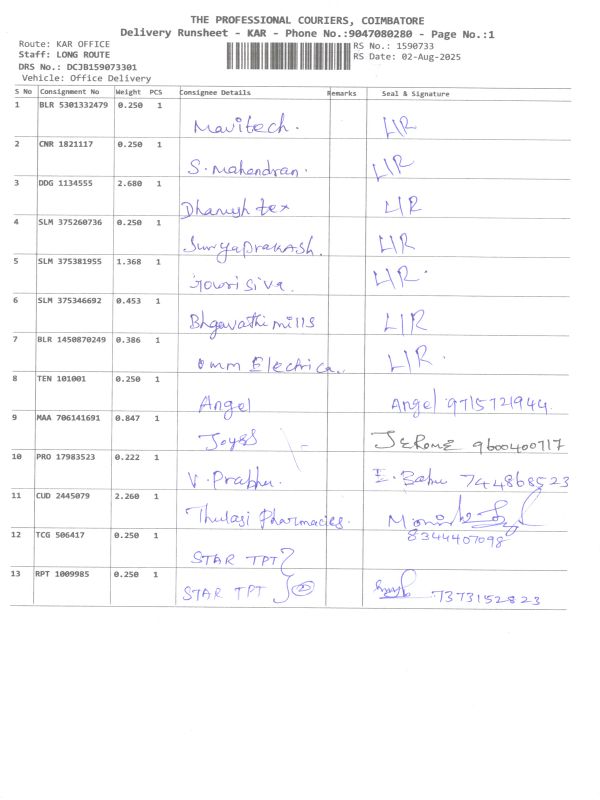 THE PROFESSIONAL COURIERS, COIMBATORE
Delivery Runsheet - KAR - Phone No.:9047080280 - Page No.:1
Route: KAR OFFICE RS No.: 1590733
Staff: LONG ROUTE RS Date: 02-Aug-2025
DRS No.: DCJB159073301
Vehicle: Office Delivery
S No Consignment No Weight PCS Consignee Details Remarks Seal & Signature
1 BLR 5301332479 0.250 1
Mavitech. LIR
2 CNR 1821117 0.250 1
S. Mahendran. LIR
3 DDG 1134555 2.680 1
Dhanush tex LIR
4 SLM 375260736 0.250 1
Suryaprakash. LIR
5 SLM 375381955 1.368 1
Gowri Siva. LIR.
6 SLM 375346692 0.453 1
Bhgavathi mills LIR
7 BLR 1450870249 0.386 1
omm Electrica.. LIR.
8 TEN 101001 0.250 1
Angel Angel 9715721944
9 MAA 706141691 0.847 1
JEROME 9600400717
10 PRO 17983523 0.222 1
V. Prabhu. E. Babu 744868523
11 CUD 2445079 2.260 1
Thulasi Pharmacies.
8344407098
12 TCG 506417 0.250 1
STAR TPT
13 RPT 1009985 0.250 1
STAR TPT 2 7373152823